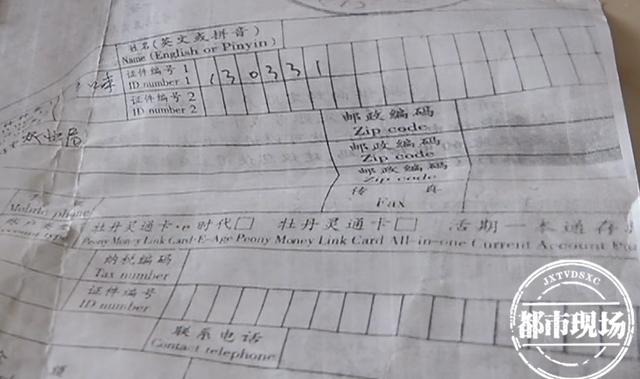 姓名(英文或拼音)
Name (English or Pinyin)
证件编号 1
ID number 1
130331
证件编号 2
ID number 2
邮政编码
Zip code
邮政编码
Zip code
邮政编码
Zip code
传 真
Fax
Mobile phone
牡丹灵通卡·e时代□ 牡丹灵通卡□ 活期一本通存
Peony Money Link Card-E-Age Peony Money Link Card All-in-one Current Account
纳税编码
Tax number
证件编号
ID number
联系电话
Contact telephone
JXTVDSXC
都市现场